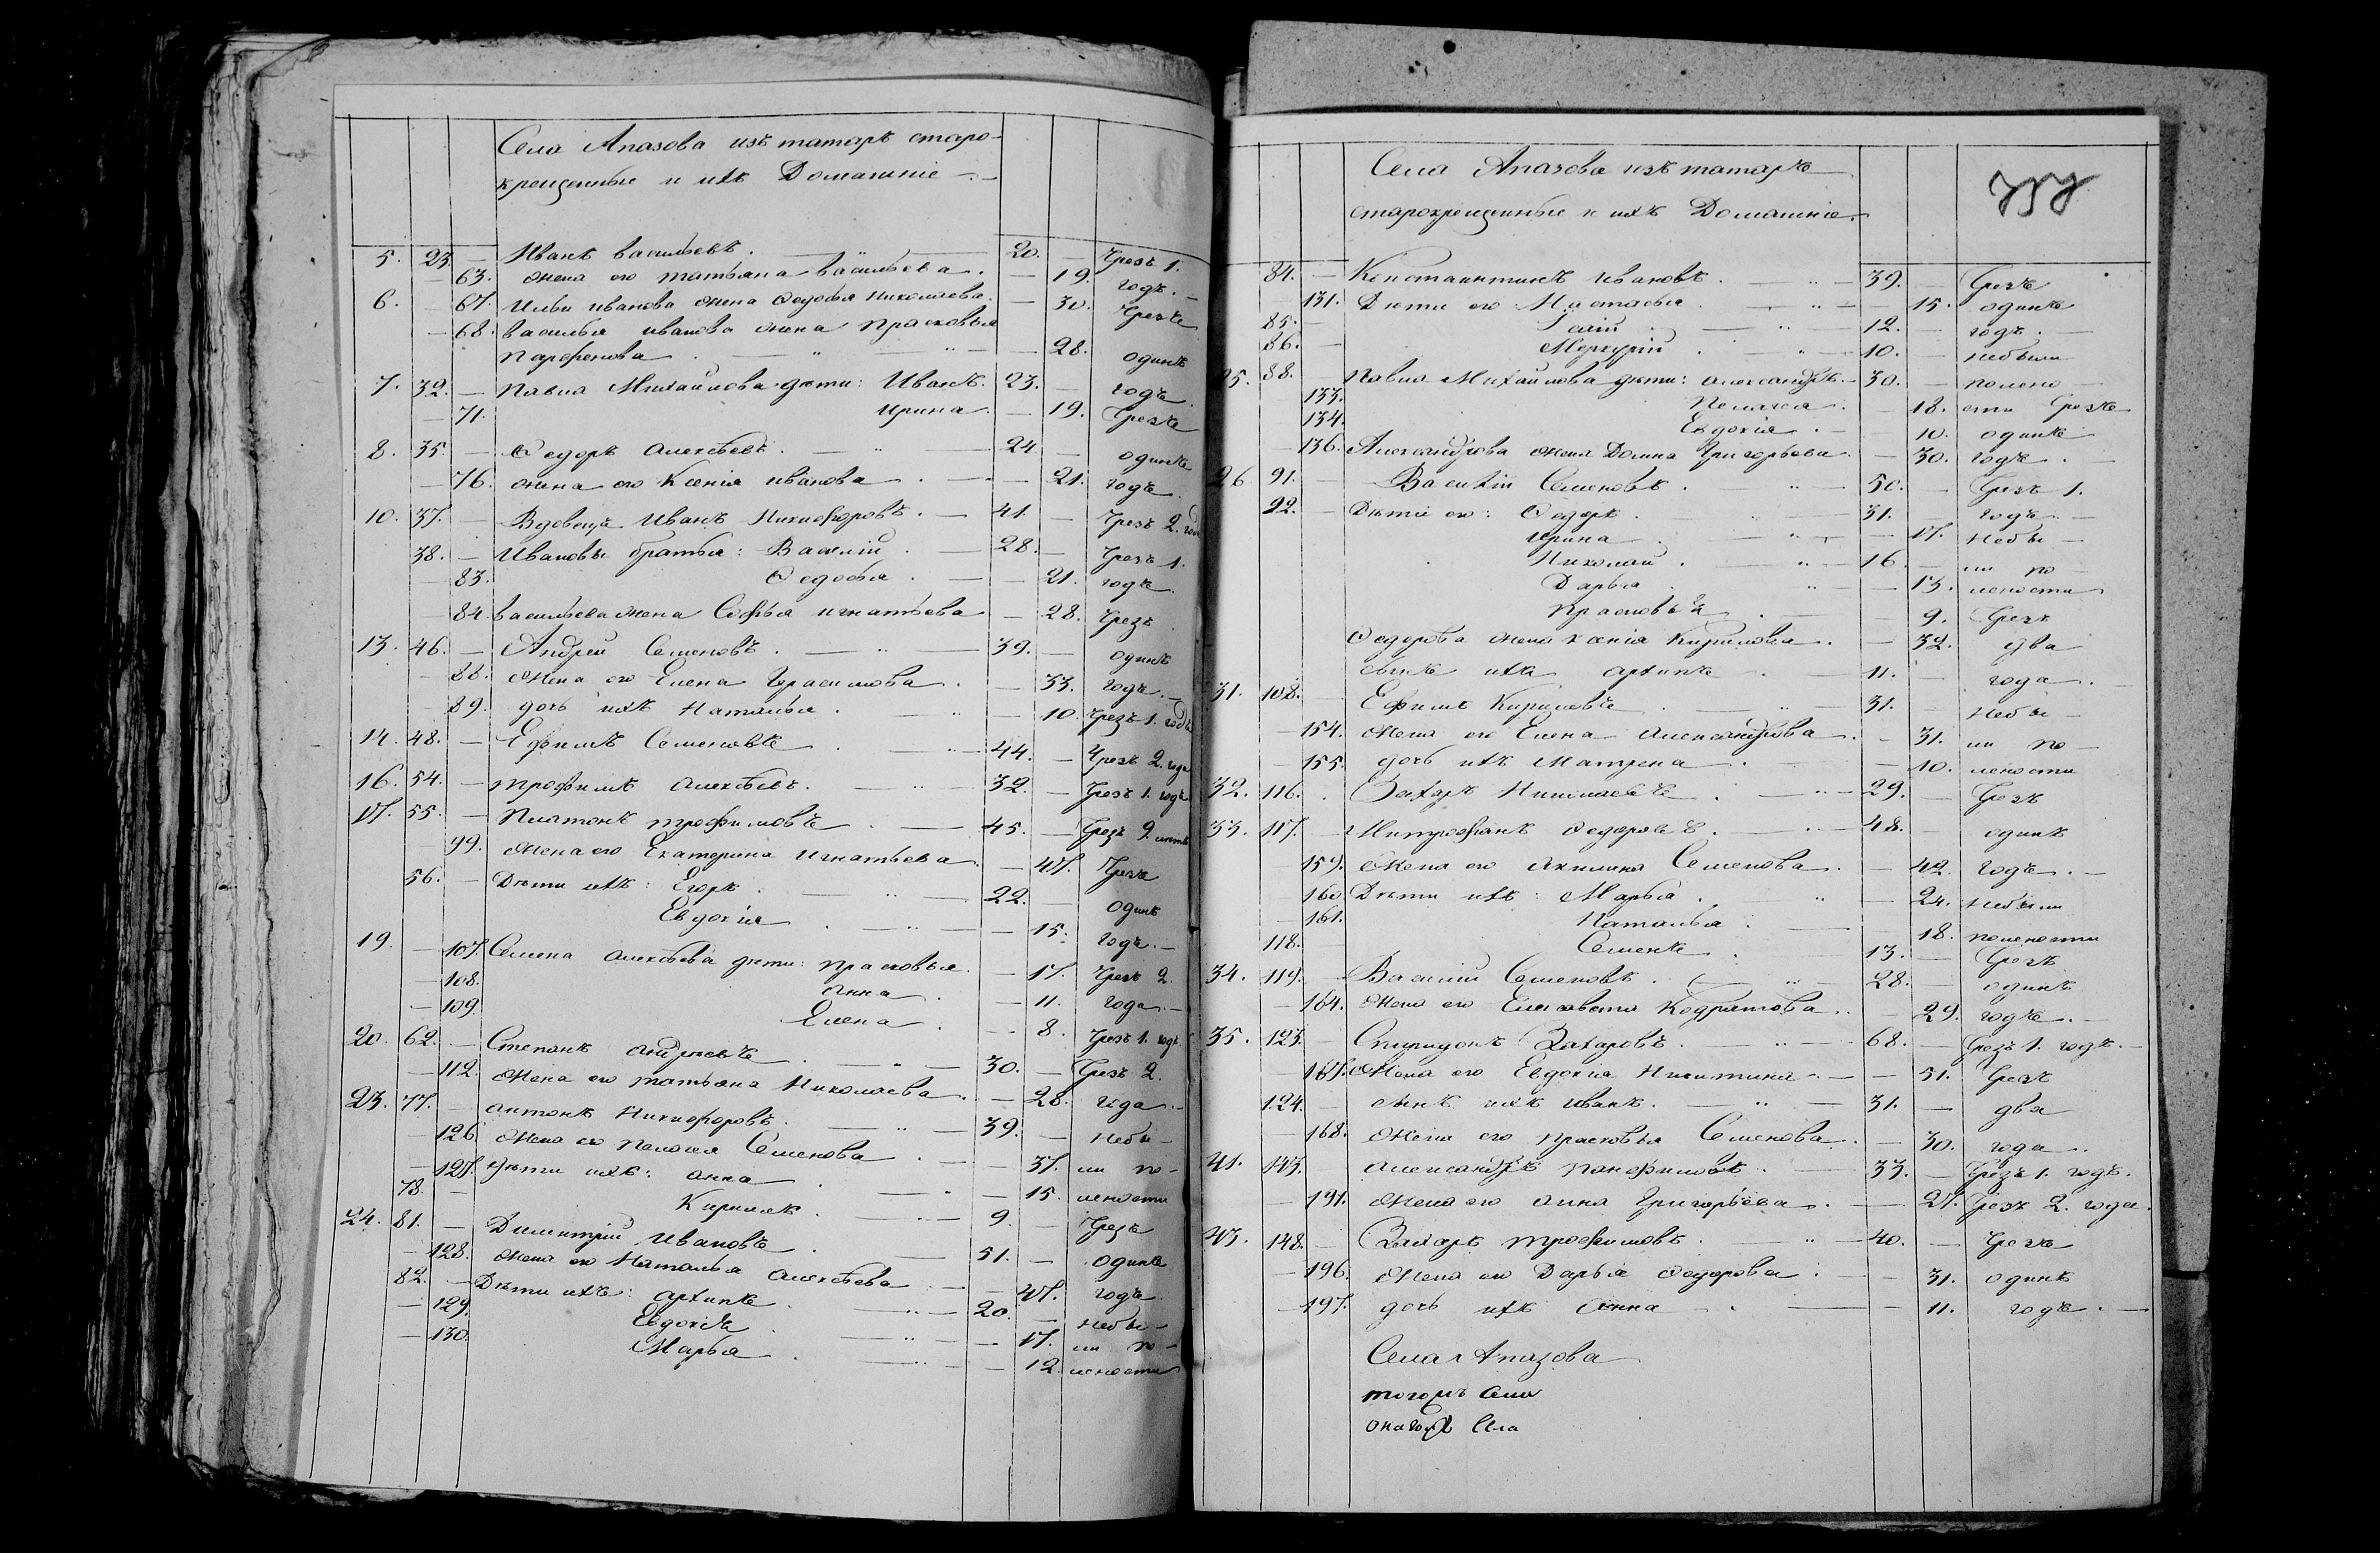 Села Апазова изъ татаръ старо-
крещенные и ихъ Домашніе
5. 23 — Иванъ Васильевъ. — 20. — Чрезъ 1.
— 63. жена его Татьяна Васильева. — 19. годъ. —
6. — 67. Ильи Иванова жена Ѳедосья Николаева. — 30. Чрезъ
— 68. Василья Иванова жена Прасковья
Парфенова. — 28. одинъ
7. 32. — Павла Михайлова дѣти: Иванъ. 23. — годъ
— 71. Ирина. — 19. Чрезъ
8. 35. — Ѳедоръ Алексѣевъ. — 24. — одинъ
— 76. жена его Ксенія Иванова. — 21. годъ.
10. 37. — Вдовецъ Иванъ Никифоровъ. — 41. — Чрезъ 2. года
38. — Ивановы братья: Василій. 28. — Чрезъ 1.
— 83. Ѳедосья. — 21. годъ.
— 84. Васильева жена Софья Игнатьева — 28. Чрезъ
13. 46. — Андрей Семеновъ. — 39. — одинъ
— 88. жена его Елена Герасимова. — 33. годъ. —
— 89. дочь ихъ Наталья. — 10. Чрезъ 1. годъ
14. 48. — Ефимъ Семеновъ. — 44. — Чрезъ 2. года
16. 54. — Трофимъ Алексѣевъ. — 32. — Чрезъ 1. годъ
17. 55. — Платонъ Трофимовъ. — 45. — Чрезъ 9. лѣтъ
99. Жена его Екатерина Игнатьева. — 47. Чрезъ
56. — Дѣти ихъ: Егоръ. — 22. — одинъ
Евдокія. — 15. годъ. —
19. — 107. Семена Алексѣева дѣти: Прасковья. — 17. Чрезъ 2.
— 108. Анна. — 11. года. —
— 109. Елена. — 8. Чрезъ 1. годъ.
20. 62. — Степанъ Андреевъ. — 30. — Чрезъ 2.
— 112. Жена его Татьяна Николаева. — 28. года. —
23. 77. — Антонъ Никифоровъ. — 39. — Небы-
— 126. Жена его Пелагея Семенова. — 37. ли по-
— 127. дѣти ихъ: Анна. — 15. лѣности
78. — Кирилъ. — 9. — Чрезъ
24. 81. — Димитрій Ивановъ. 51. — одинъ
— 128. Жена его Наталья Алексѣева — 47. годъ.
82. — Дѣти ихъ: Архипъ. — 20. — Небы-
— 129. Евдокія. — 17. ли по-
— 130. Марья. — 12. лѣности
Села Апазова изъ татаръ
старокрещенные и ихъ Домашніе.
84. — Константинъ Ивановъ. — 39. — Чрезъ
131. Дѣти его Настасья. — 15. одинъ
85. — 12. — годъ. —
86. — Меркурій. — 10. — небыли
25. 88. — Павла Михайлова дѣти: Александръ. — 30. — полено
133. Пелагея. — 18. сти Чрезъ
134. Евдокія. — 10. одинъ
— 136. Александрова жена Домна Григорьева. — 30. годъ.
26 91. — Василій Семеновъ. — 50. — Чрезъ 1.
92. — Дѣти его: Ѳедоръ. — 31. — годъ. —
Ирина. — 17. Небы —
Николай. — 16. — ли по —
Дарья. — 13. лености
Прасковья. — 9. Чрезъ
Ѳедорова жена Ксенія Кирилова. — 32. два
сынъ ихъ Архипъ. 11. — года. —
31. 108. — Ефимъ Кириловъ. — 31. — Небы —
— 154. Жена его Елена Александрова. — 31. ли по —
— 155. дочь ихъ Матрена. — 10. лености
32. 116. Захаръ Николаевъ. — 29. — Чрезъ
33. 117. — Митрофанъ Ѳедоровъ. — 48. одинъ
— 159. Жена его Акилина Семенова. — 42. годъ. —
— 160 Дѣти ихъ: Марья. — 24. Небыли
— 161. Наталья. — 18. полености
118. — Семенъ. 13. — Чрезъ
34. 119. — Василій Семеновъ. — 28. — одинъ
— 164. Жена его Елисавета Кодратова. — 29. годъ. —
35. 123. — Спиридонъ Захаровъ. — 68. — Чрезъ 1. годъ. —
— 167. Жена его Евдокія Никитина. — 51. Чрезъ
124. — сынъ ихъ Иванъ. — 31. — два
— 168. Жена его Прасковья Семенова. — 30. года.
41. 143. — Александръ Панфиловъ. — 33. — Чрезъ 1. годъ.
— 191. Жена его Анна Григорьева. — 27. Чрезъ 2. года.
43. 148. — Захаръ Трофимовъ. — 40. — Чрезъ
— 196. Жена его Дарья Ѳедорова. — 31. одинъ
— 197. дочь ихъ Анна. — 11. годъ. —
Села Апазова
тогожъ Села
онагожъ Села